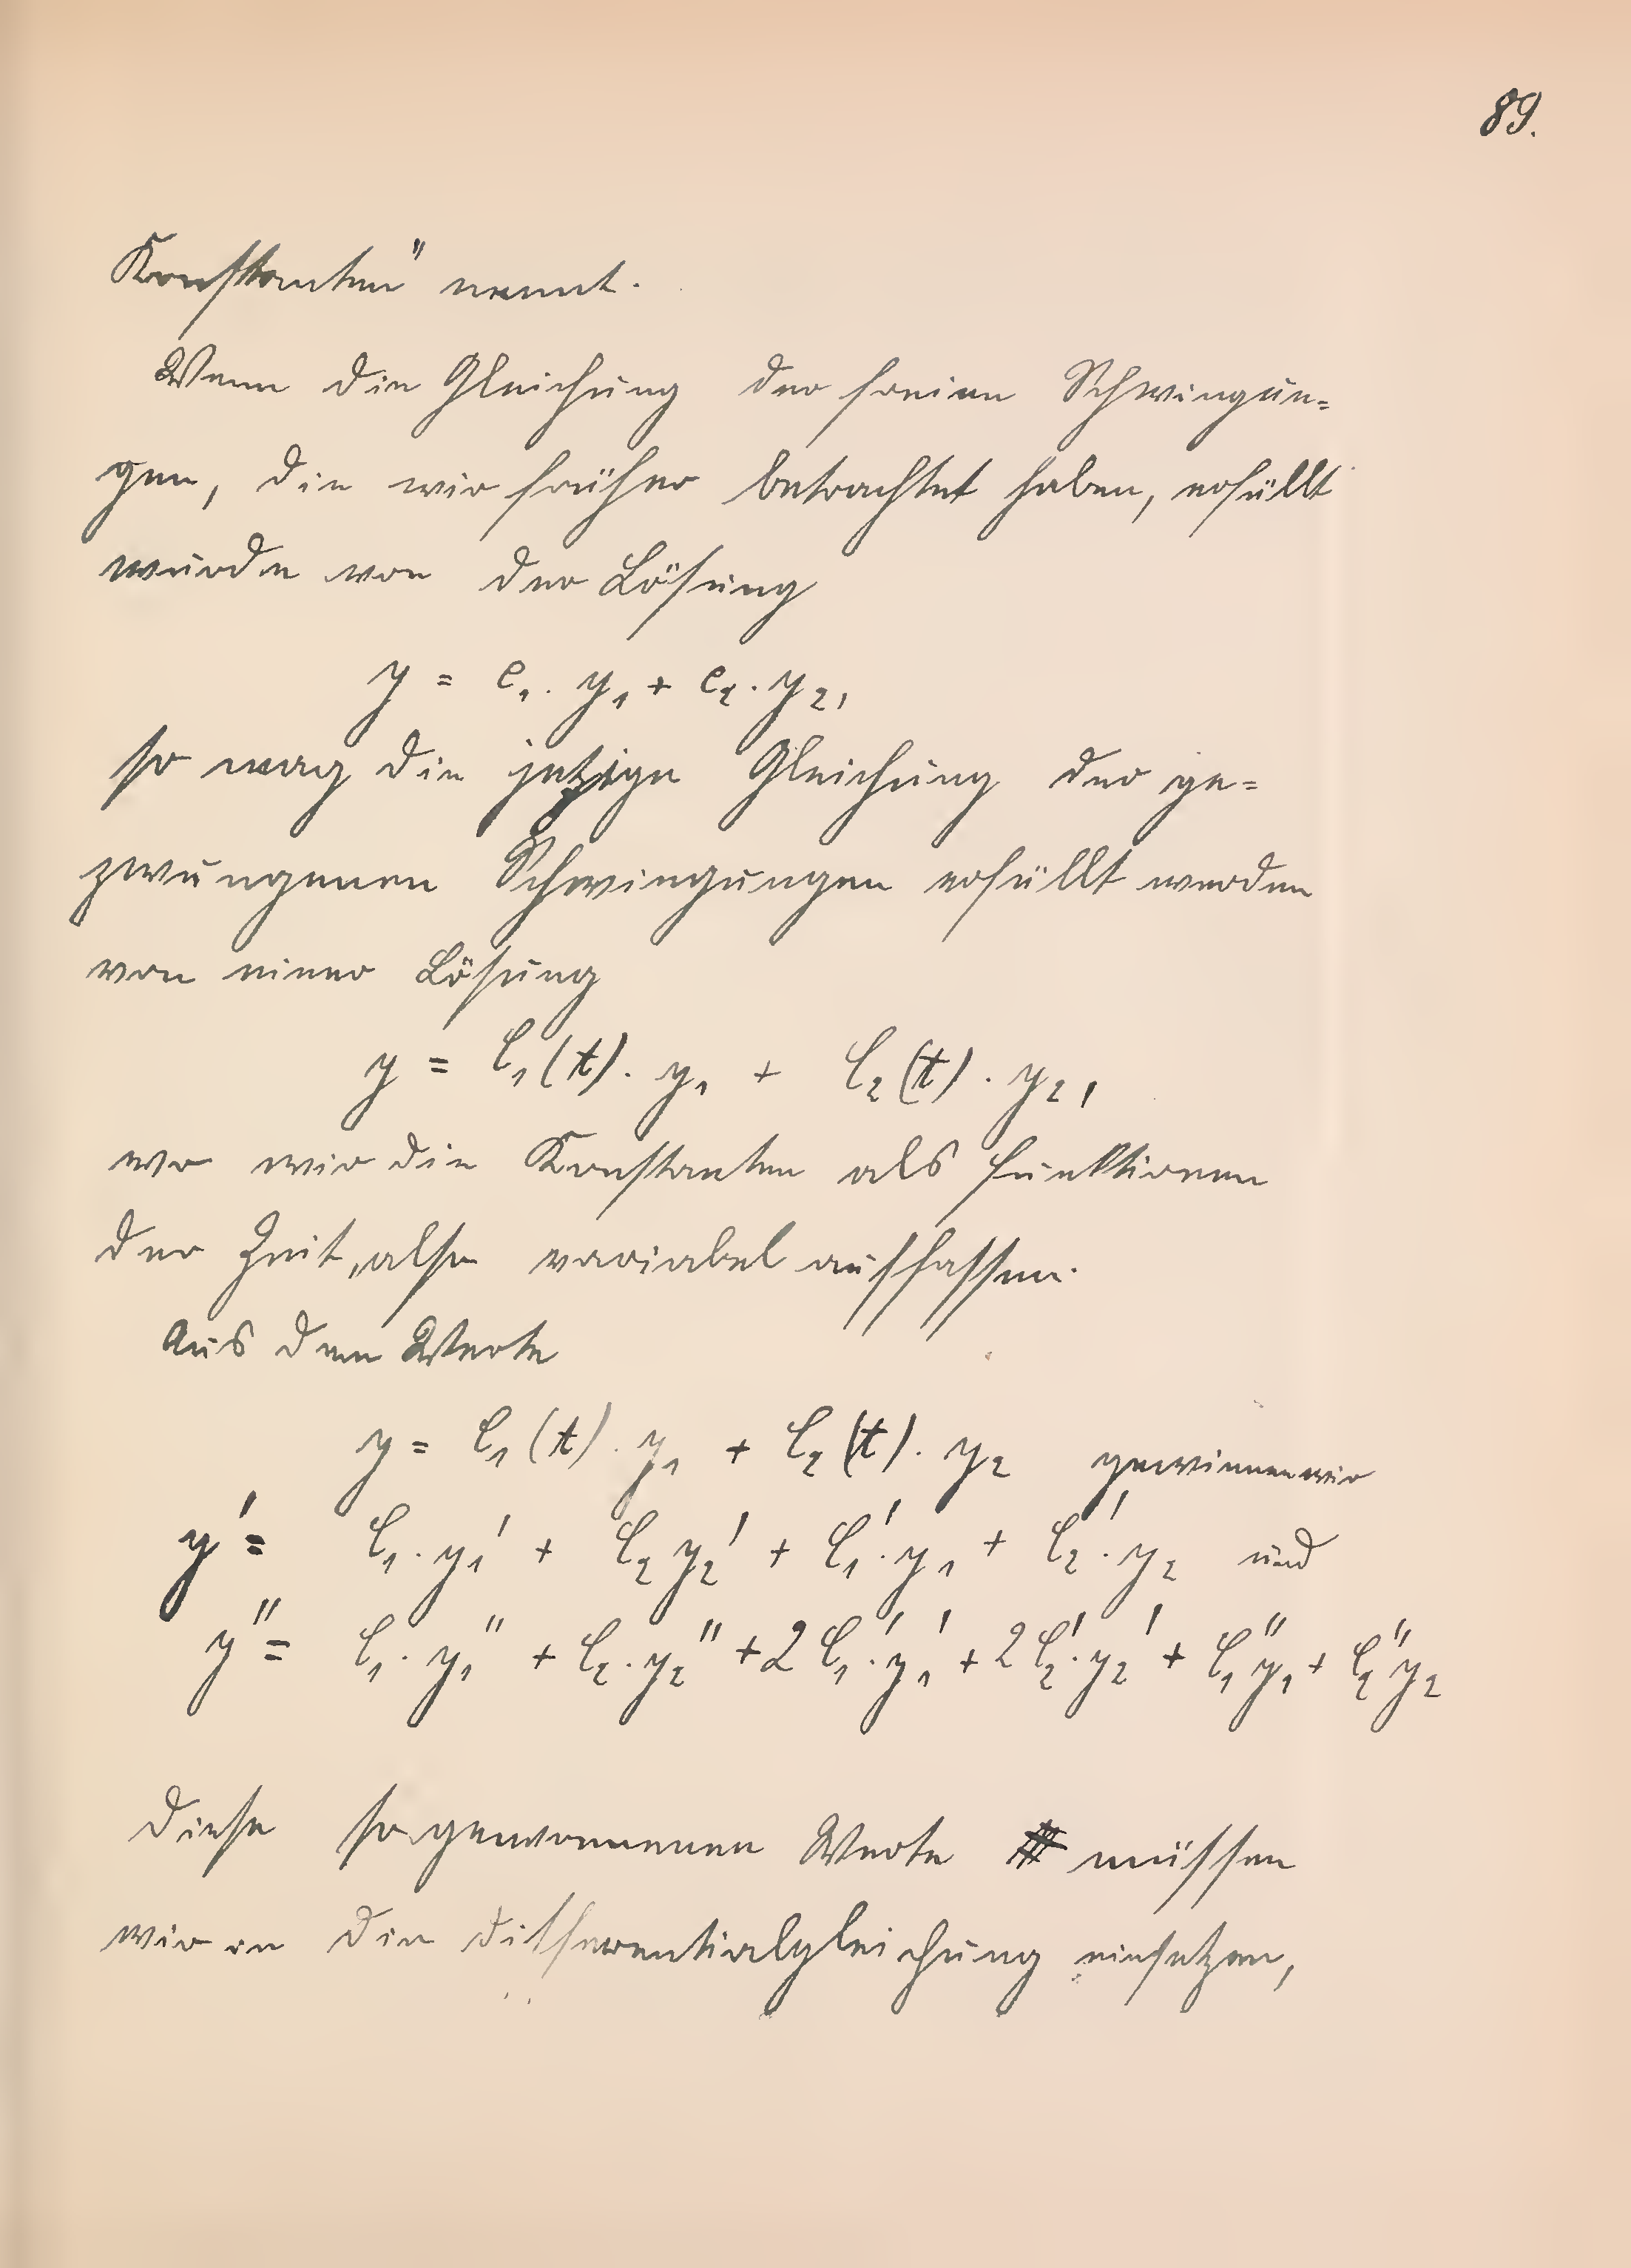 89.
Konstanten" nennt.
Wenn die Gleichung der freien Schwingun=
gen, die wir früher betrachtet haben, erfüllt
wurde von der Lösung
y = c₁ . y₁ + c₂ . y₂,
so mag die jetzige Gleichung der ge=
zwungenen Schwingungen erfüllt werden
von einer Lösung
y = C₁(t) . y₁ + C₂(t) . y₂,
wo wir die Konstanten als Funktionen
der Zeit, also variabel auffassen.
Aus dem Werte
y = C₁(t) . y₁ + C₂(t) . y₂ gewinnen wir
y' = C₁ . y₁' + C₂ y₂' + C₁' . y₁ + C₂' . y₂ und
y'' = C₁ . y₁'' + C₂ . y₂'' + 2 C₁' . y₁' + 2 C₂' . y₂' + C₁'' y₁ + C₂'' y₂
Diese so gewonnenen Werte müssen
wir in die Differentialgleichung einsetzen,